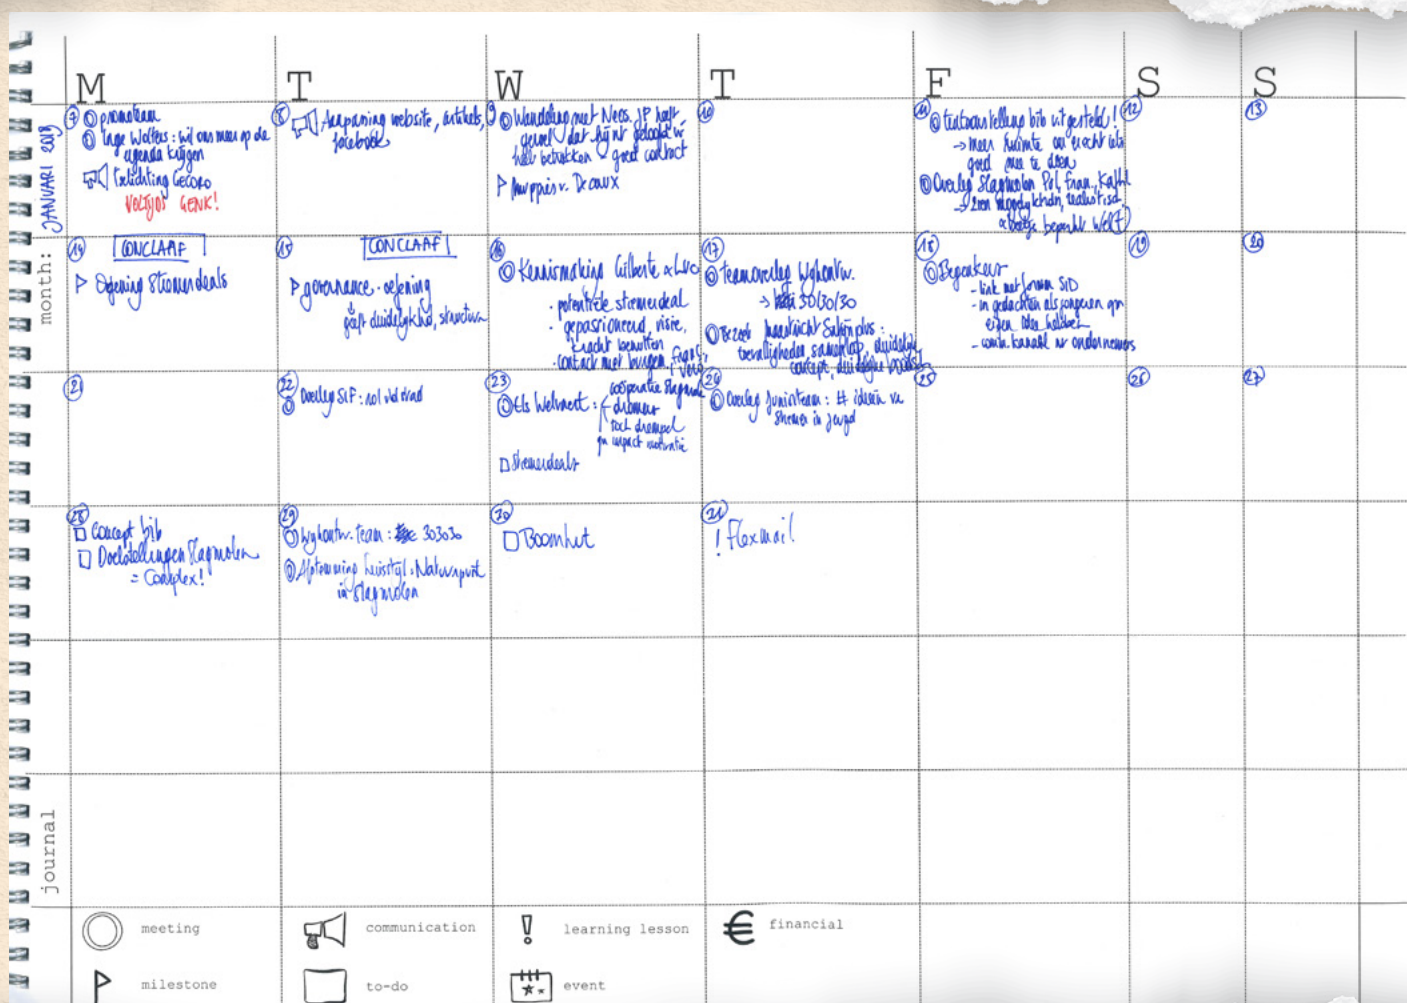 M T W T F S S
month: JANUARI 2019
7
promoteam
Inge Wolters: wil ons meer op de
agenda krijgen
Toelichting Gecoro
VOLTIJDS GENK!
8
Aanpassing website, artikels,
facebook
9
Wandeling met Nees. JP heeft
gevoel dat hij nt geloofd w
betrokken goed contact
10
11
tentoonstelling bib uitgesteld!
→ meer ruimte om er echt iets
goed mee te doen
Overleg Slagmolen Pol, Fran,
→ realistisch
beetje beperkt
12
13
14
CONCLAAF
Oefening Stiemerdeals
15
CONCLAAF
governance-oefening
geeft duidelijkheid, structuur
16
Kennismaking Gilberte & Luc
· potentiële stiemerdeal
· gepassioneerd, visie,
kracht benutten
· contact met burgem,
17
Teamoverleg Wijkontw.
→ 30/30/30
Bezoek Maastricht Sphinx
toevalligheden, duidelijk
concept, duidelijke
18
- link met forum SID
- in gedachten als jongeren
eigen idee hebben
- comm. kanaal nr ondernemers
19
20
21
22
Overleg SLF: rol vld stad
23
Els Welvaert:
coöperatie Slagmolen
dromen
toch drempel
impact motivatie
Stiemerdeals
24
Overleg Juniorteam: # ideeën
Stiemer in jeugd
25
26
27
28
Concept bib
Doelstellingen Slagmolen
= Complex!
29
Wijkontw. team: 303030
Afstemming huisstijl Natuurpunt
in Slagmolen
30
Boomhut
31
! Flexmail
journal
meeting
communication
learning lesson
€ financial
milestone
to-do
event